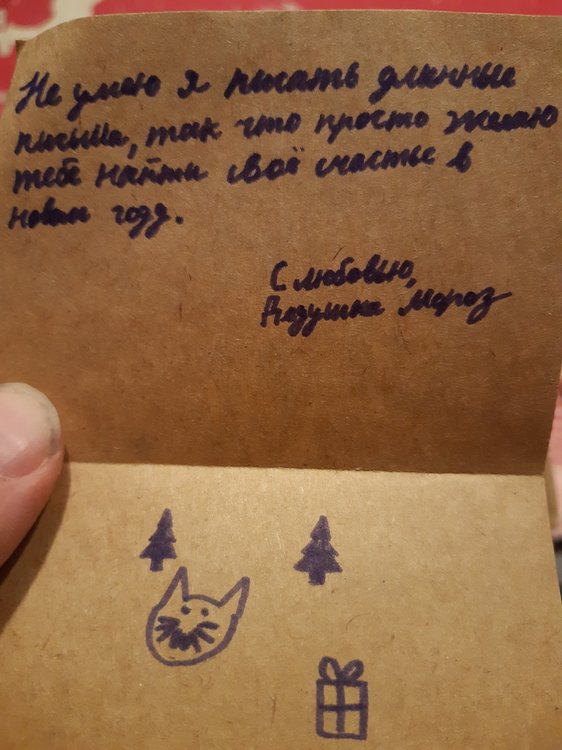 Не умею я писать длинные
письма, так что просто желаю
тебе найти своё счастье в
новом году.
С любовью,
Дедушка Мороз